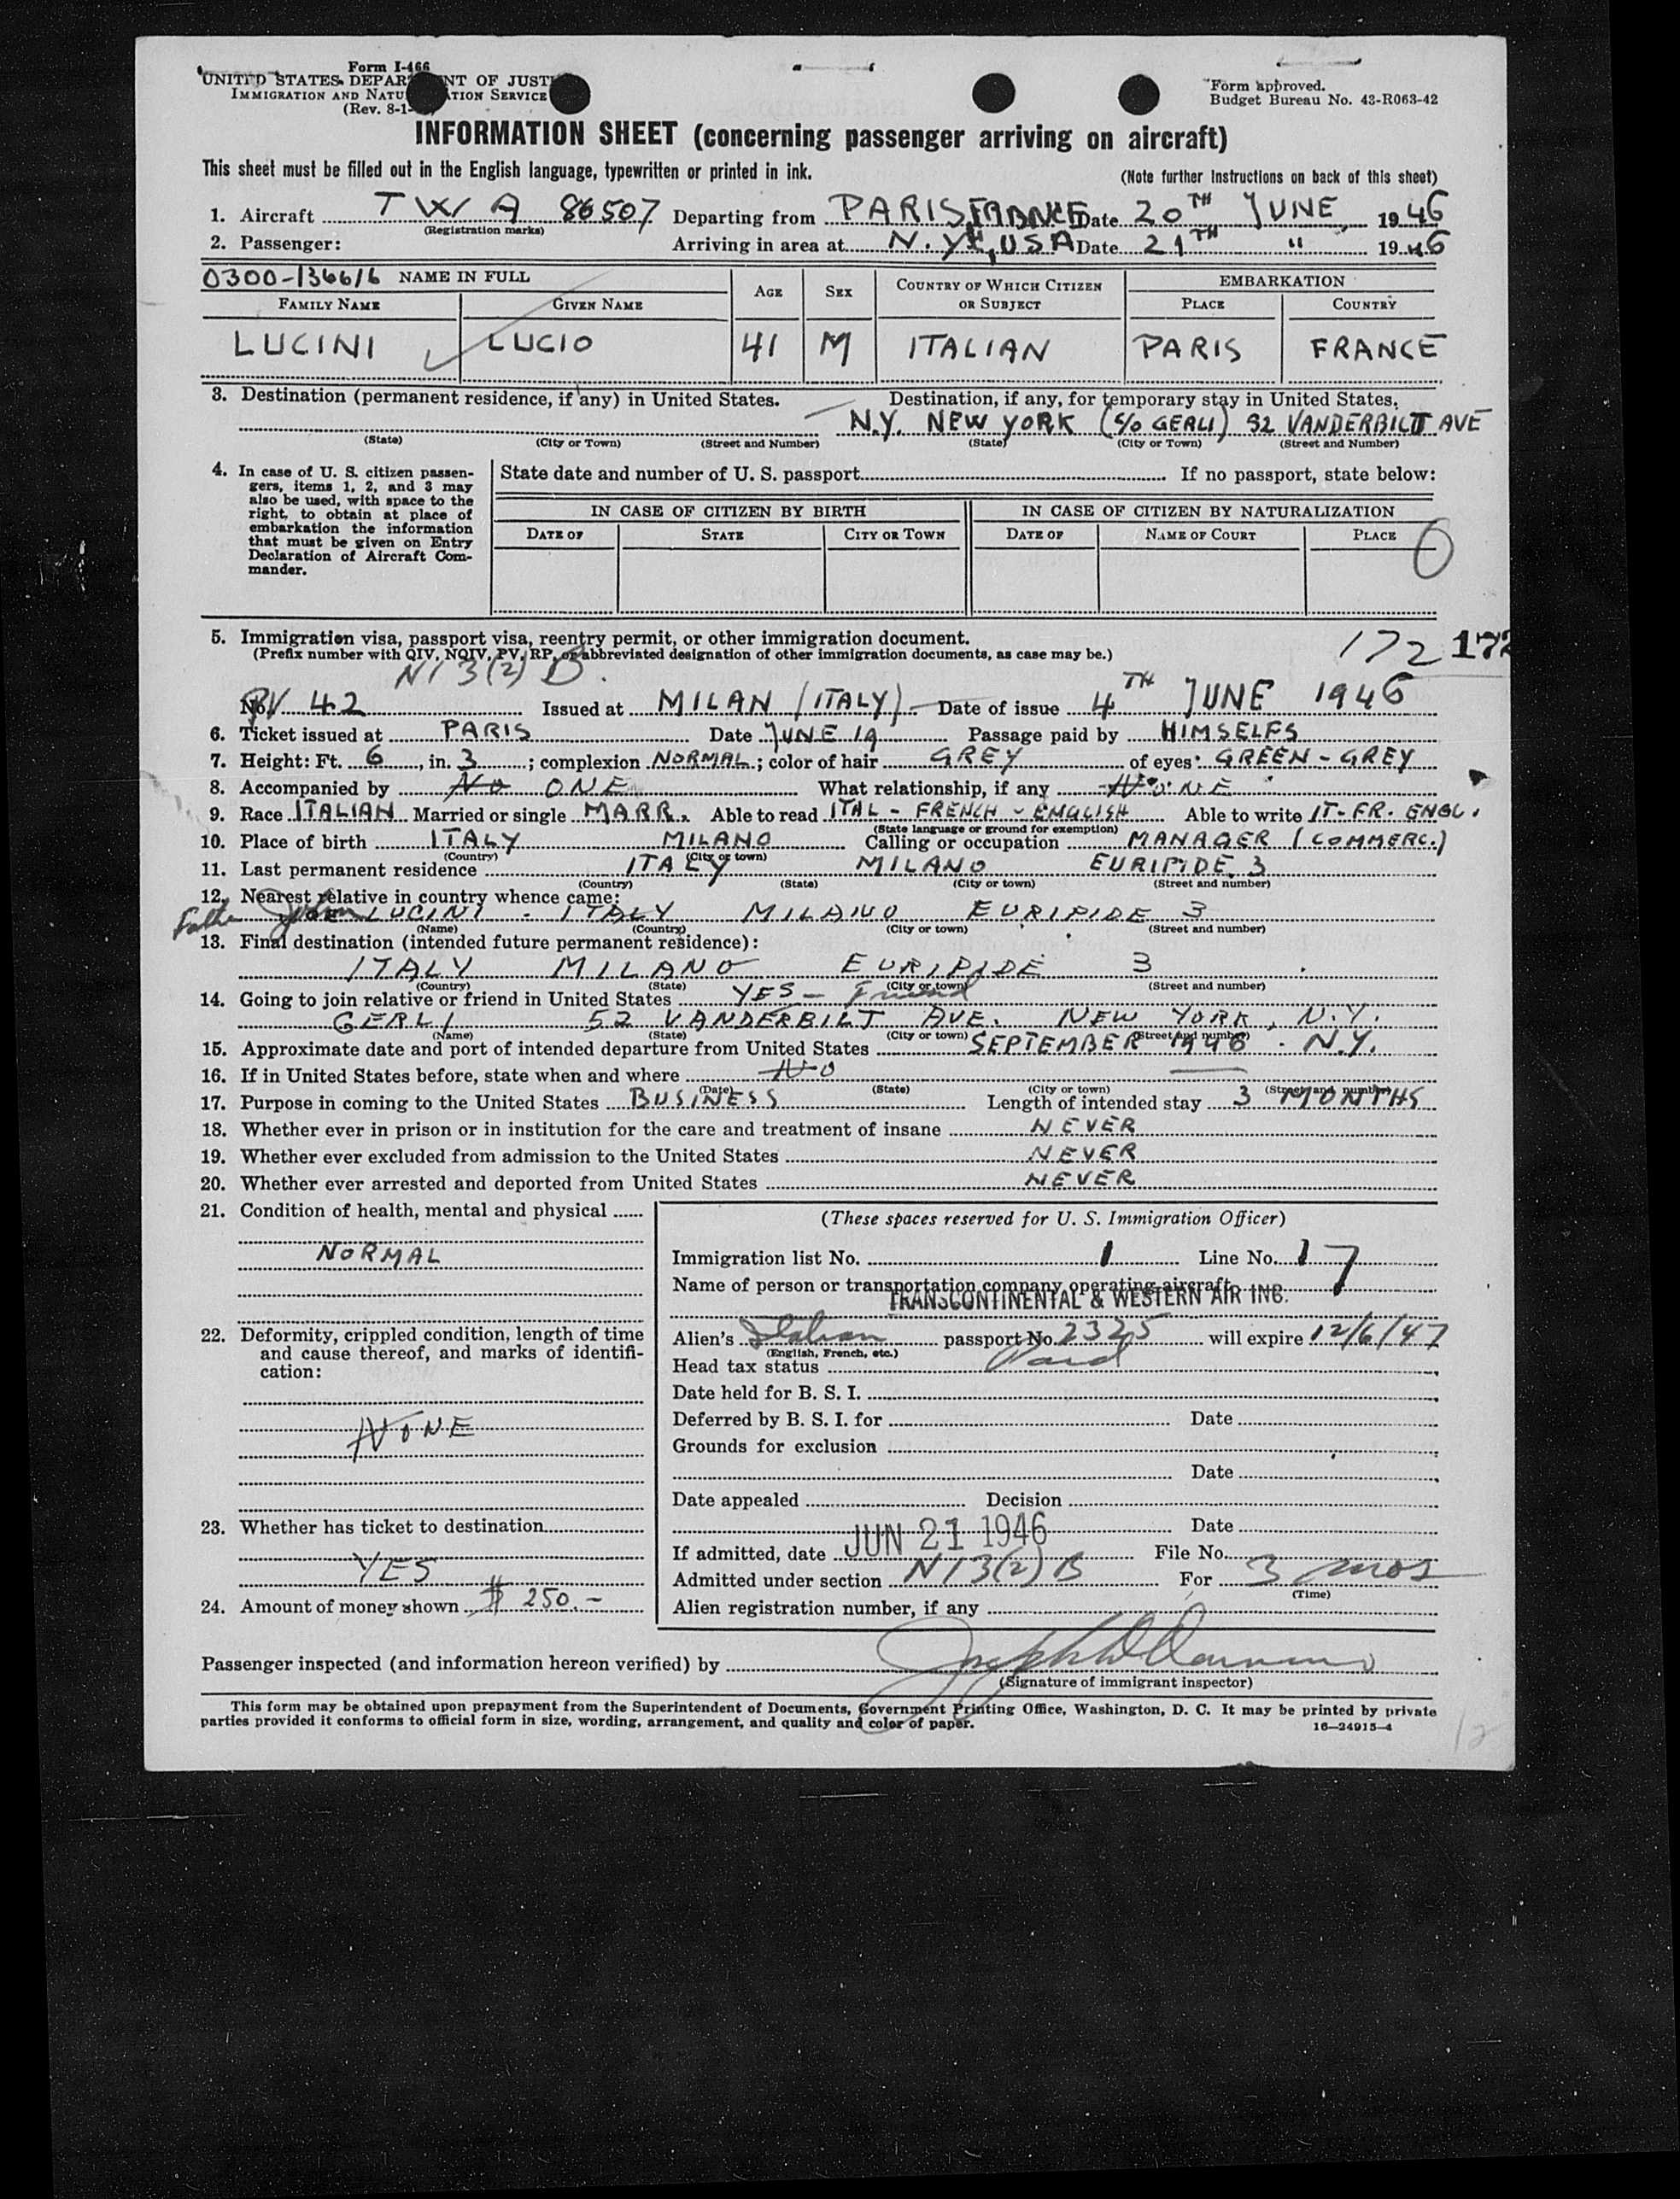 Form I-466
UNITED STATES DEPARTMENT OF JUSTICE
IMMIGRATION AND NATURALIZATION SERVICE
(Rev. 8-1-
Form approved.
Budget Bureau No. 43-R063-42
INFORMATION SHEET (concerning passenger arriving on aircraft)
This sheet must be filled out in the English language, typewritten or printed in ink.
(Note further instructions on back of this sheet)
1. Aircraft TWA 86507 Departing from PARIS, FRANCE Date 20TH JUNE, 1946
(Registration marks)
2. Passenger: Arriving in area at N.Y., USA Date 21TH " 1946
0300-13661/6 NAME IN FULL AGE SEX COUNTRY OF WHICH CITIZEN OR SUBJECT EMBARKATION
FAMILY NAME GIVEN NAME PLACE COUNTRY
LUCINI LUCIO 41 M ITALIAN PARIS FRANCE
3. Destination (permanent residence, if any) in United States. Destination, if any, for temporary stay in United States.
N.Y. NEW YORK (c/o GERLI) 52 VANDERBILT AVE
(State) (City or Town) (Street and Number) (State) (City or Town) (Street and Number)
4. In case of U. S. citizen passengers, items 1, 2, and 3 may also be used, with space to the right, to obtain at place of embarkation the information that must be given on Entry Declaration of Aircraft Commander.
State date and number of U. S. passport If no passport, state below:
IN CASE OF CITIZEN BY BIRTH IN CASE OF CITIZEN BY NATURALIZATION
DATE OF STATE CITY OR TOWN DATE OF NAME OF COURT PLACE
0
5. Immigration visa, passport visa, reentry permit, or other immigration document.
172 172
(Prefix number with QIV, NQIV, PV, RP, or abbreviated designation of other immigration documents, as case may be.)
N1 3(2) B.
No. PV 42 Issued at MILAN (ITALY) Date of issue 4TH JUNE 1946
6. Ticket issued at PARIS Date JUNE 19 Passage paid by HIMSELFS
7. Height: Ft. 6, in. 3; complexion NORMAL; color of hair GREY of eyes GREEN - GREY
8. Accompanied by NO ONE What relationship, if any NONE
9. Race ITALIAN Married or single MARR. Able to read ITAL - FRENCH - ENGLISH Able to write IT-FR. ENGL.
(State language or ground for exemption)
10. Place of birth ITALY MILANO Calling or occupation MANAGER (COMMERC.)
(Country) (City or town)
11. Last permanent residence ITALY MILANO EURIPIDE 3
(Country) (State) (City or town) (Street and number)
12. Nearest relative in country whence came:
Father John LUCINI - ITALY MILANO EURIPIDE 3
(Name) (Country) (City or town) (Street and number)
13. Final destination (intended future permanent residence):
ITALY MILANO EURIPIDE 3
(Country) (State) (City or town) (Street and number)
14. Going to join relative or friend in United States YES - Friend
GERLI 52 VANDERBILT AVE. NEW YORK, N.Y.
(Name) (State) (City or town) (Street and number)
15. Approximate date and port of intended departure from United States SEPTEMBER 1946 - N.Y.
16. If in United States before, state when and where NO
(Date) (State) (City or town) (Street and number)
17. Purpose in coming to the United States BUSINESS Length of intended stay 3 MONTHS
18. Whether ever in prison or in institution for the care and treatment of insane NEVER
19. Whether ever excluded from admission to the United States NEVER
20. Whether ever arrested and deported from United States NEVER
21. Condition of health, mental and physical
NORMAL
22. Deformity, crippled condition, length of time and cause thereof, and marks of identification:
NONE
23. Whether has ticket to destination
YES
24. Amount of money shown $ 250.-
(These spaces reserved for U. S. Immigration Officer)
Immigration list No. 1 Line No. 17
Name of person or transportation company operating aircraft
TRANSCONTINENTAL & WESTERN AIR INC.
Alien's Italian passport No. 2325 will expire 12/6/47
(English, French, etc.)
Head tax status Paid
Date held for B. S. I.
Deferred by B. S. I. for Date
Grounds for exclusion
Date
Date appealed Decision
Date
If admitted, date JUN 21 1946 File No.
Admitted under section N1 3(2) B For 3 mos
(Time)
Alien registration number, if any
Passenger inspected (and information hereon verified) by
(Signature of immigrant inspector)
This form may be obtained upon prepayment from the Superintendent of Documents, Government Printing Office, Washington, D. C. It may be printed by private
parties provided it conforms to official form in size, wording, arrangement, and quality and color of paper.
16—24915-4
12